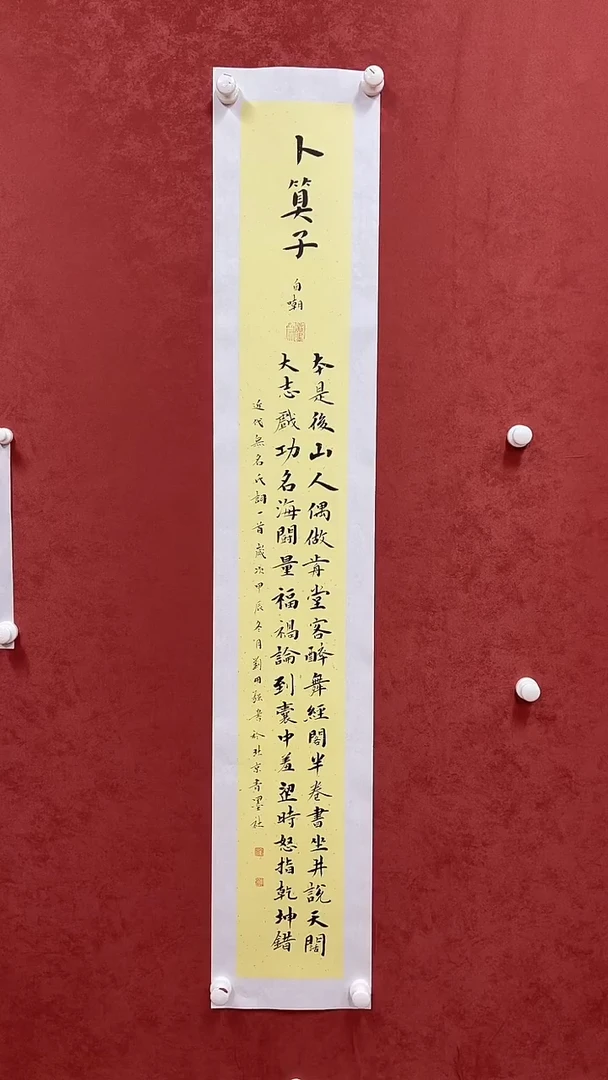 卜算子
自嘲
本是後山人偶做歬堂客醉舞經閣半卷書坐井說天闊
大志戲功名海闘量福禍論到囊中羞澀時怒指乾坤錯
近代無名氏詞一首歲次甲辰冬月劉強書於北京墨社